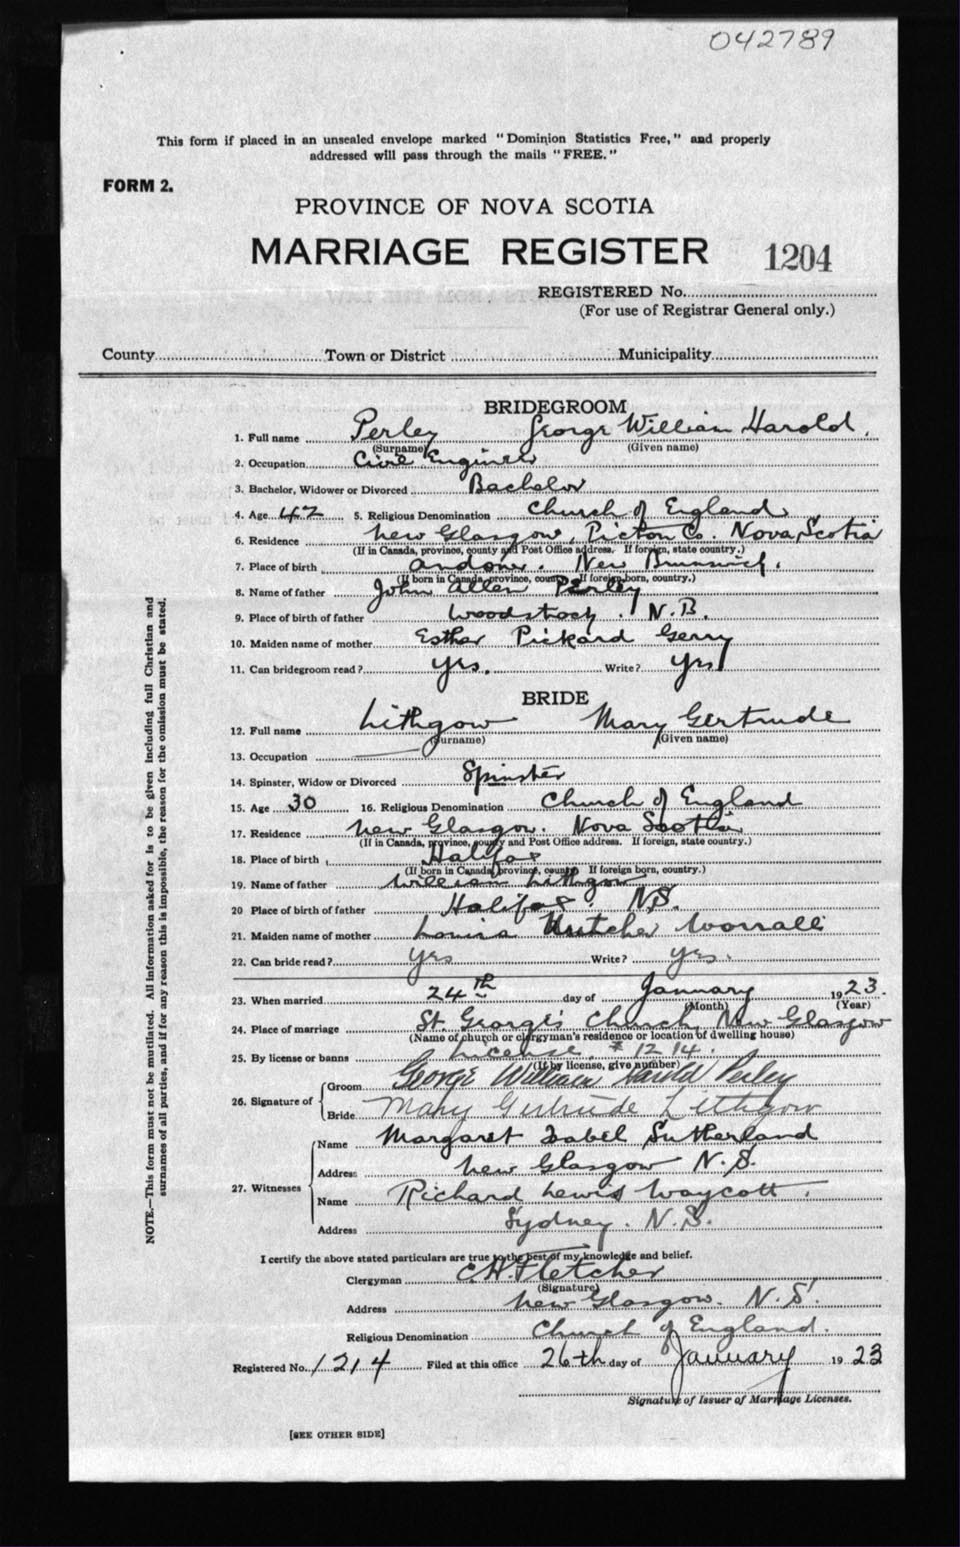 042789
This form if placed in an unsealed envelope marked "Dominion Statistics Free," and properly
addressed will pass through the mails "FREE."
FORM 2.
PROVINCE OF NOVA SCOTIA
MARRIAGE REGISTER 1204
REGISTERED No.
(For use of Registrar General only.)
County Town or District Municipality
BRIDEGROOM
1. Full name Perley George William Harold.
(Surname) (Given name)
2. Occupation Civil Engineer
3. Bachelor, Widower or Divorced Bachelor
4. Age 42 5. Religious Denomination Church of England
6. Residence New Glasgow, Picton Co. Nova Scotia
(If in Canada, province, county and Post Office address. If foreign, state country.)
7. Place of birth Andover. New Brunswick.
(If born in Canada, province, county If foreign born, country.)
8. Name of father John Allen Perley
9. Place of birth of father Woodstock. N.B.
10. Maiden name of mother Esther Pickard Gerry
11. Can bridegroom read? yes. Write? yes
BRIDE
12. Full name Lithgow Mary Gertrude
(Surname) (Given name)
13. Occupation
14. Spinster, Widow or Divorced Spinster
15. Age 30 16. Religious Denomination Church of England
17. Residence New Glasgow. Nova Scotia
(If in Canada, province, county and Post Office address. If foreign, state country.)
18. Place of birth Halifax
(If born in Canada, province, county If foreign born, country.)
19. Name of father William Lithgow
20 Place of birth of father Halifax. N.S.
21. Maiden name of mother Louisa Worrall
22. Can bride read? yes Write? yes.
23. When married 24th day of January 1923.
(Month) (Year)
24. Place of marriage St George's Church, New Glasgow
(Name of church or clergyman's residence or location of dwelling house)
25. By license or banns License, # 1214.
(If by license, give number)
26. Signature of Groom George William Harold Perley
Bride Mary Gertrude Lithgow
27. Witnesses Name Margaret Isabel Sutherland
Address New Glasgow N.S.
Name Richard Lewis Waycott.
Address Sydney. N.S.
I certify the above stated particulars are true to the best of my knowledge and belief.
Clergyman C.H. Fletcher
(Signature)
Address New Glasgow. N.S.
Religious Denomination Church of England.
Registered No. 1214 Filed at this office 26th day of January 1923
Signature of Issuer of Marriage Licenses.
[SEE OTHER SIDE]
NOTE.—This form must not be mutilated. All information asked for is to be given including full Christian and
surnames of all parties, and if for any reason this is impossible, the reason for the omission must be stated.